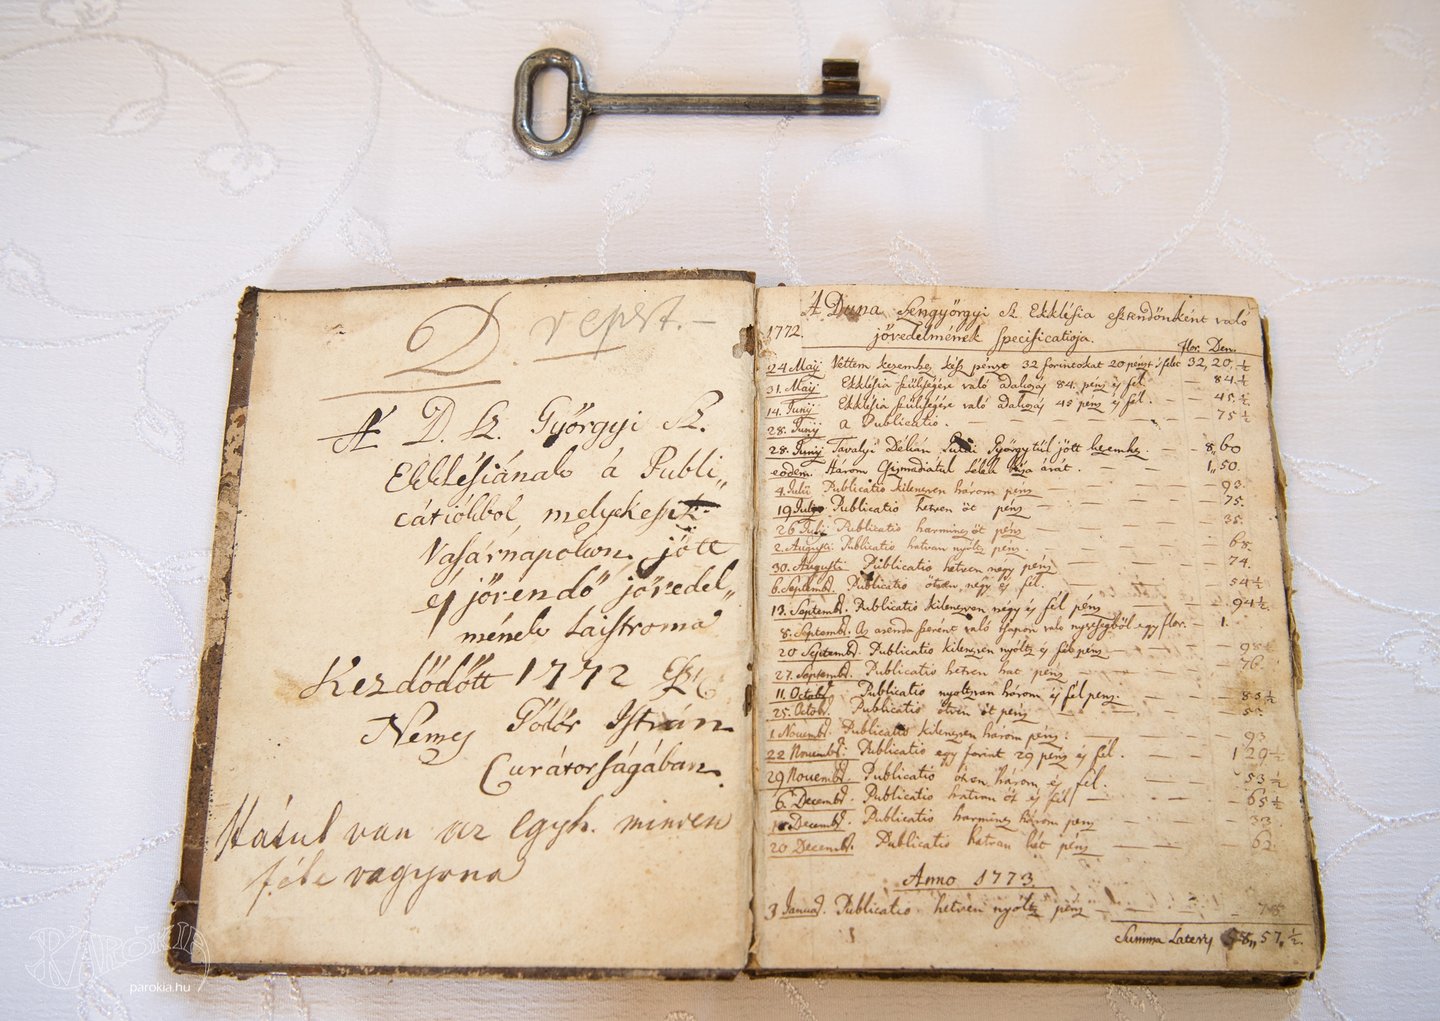 D repert.–
A D. Sz. Györgyi Sz.
Ekklésiának á Publi„
cátiókból, melyek esztˢ
Vasárnapokon jött
és jövendő jövedel„
mének Laistroma
Kezdődött 1772 Esz
Nemes Födör István
Curátorságában.
Hátul van az egyh. minden
féle vagyona
A Duna Szengyörgyi Sz Ekklésia esztendőnként való
1772. jövedelmének specificatioja.
Flor. Den.
24 Maij Vettem kezemhez kész pénzt 32 forintokat 20 pénzt 's felet 32, 20. ½
31. Maij Ekklésia szükségére való adakozás 84. pénz és fél. – 84. ½
14. Junij Ekklésia szükségére való adakozás 45 pénz és fél. – – 45. ½
28. Junij a Publicatio. – – – – – – – 75 ½
28. Junij Tavalyi Délián Györgytül jött kezemhez. – – 8„60
eodem. Három árát. – – – 1„50.
4. Julii Publicatio kilenczven három pénz – – – – 93.
19 Julij Publicatio hetven öt pénz – – – – 75.
26 Julij Publicatio harmincz öt pénz – – – – 35.
2. Augusti Publicatio hatvan nyóltz pénz. – – – – 68.
30. Augusti Publicatio hetven négy pénz – – – – 74.
6. Septembr. Publicatio ötven négy és fél. – – – 54 ½
13. Septembr. Publicatio kilenczven négy és fél pénz – – – 94 ½.
8. Septembr. Az arenda szerént való tsapon való nyereségböl egy flor. – 1.
20 Septembr. Publicatio kilenczen nyóltz és fél pénz – – – 98 ½
27. Septembr. Publicatio hetven hat pénz – – – – 76.
11. Octobr. Publicatio nyoltzvan három és fél pénz. – – – 83 ½
25. Octobr. Publicatio ötven öt pénz – – – – 55.
1. Novembr. Publicatio kilenczven három pénz: – – – 93
22 Novembr. Publicatio egy forint 29 pénz és fél. – – – 1 29 ½
29 Novembr. Publicatio ötven három és fél. – – – 53 ½
6. Decembr. Publicatio hatvan öt és fél – – – – 65 ½
Decembr. Publicatio harmincz három pénz – – – 33.
20 Decembr. Publicatio hatvan két pénz – – – – 62.
Anno 1773.
3 Januar. Publicatio hetven nyóltz pénz – – – – 78
Summa Lateris 58„ 57„ ½.
PARÓKIA
parokia.hu